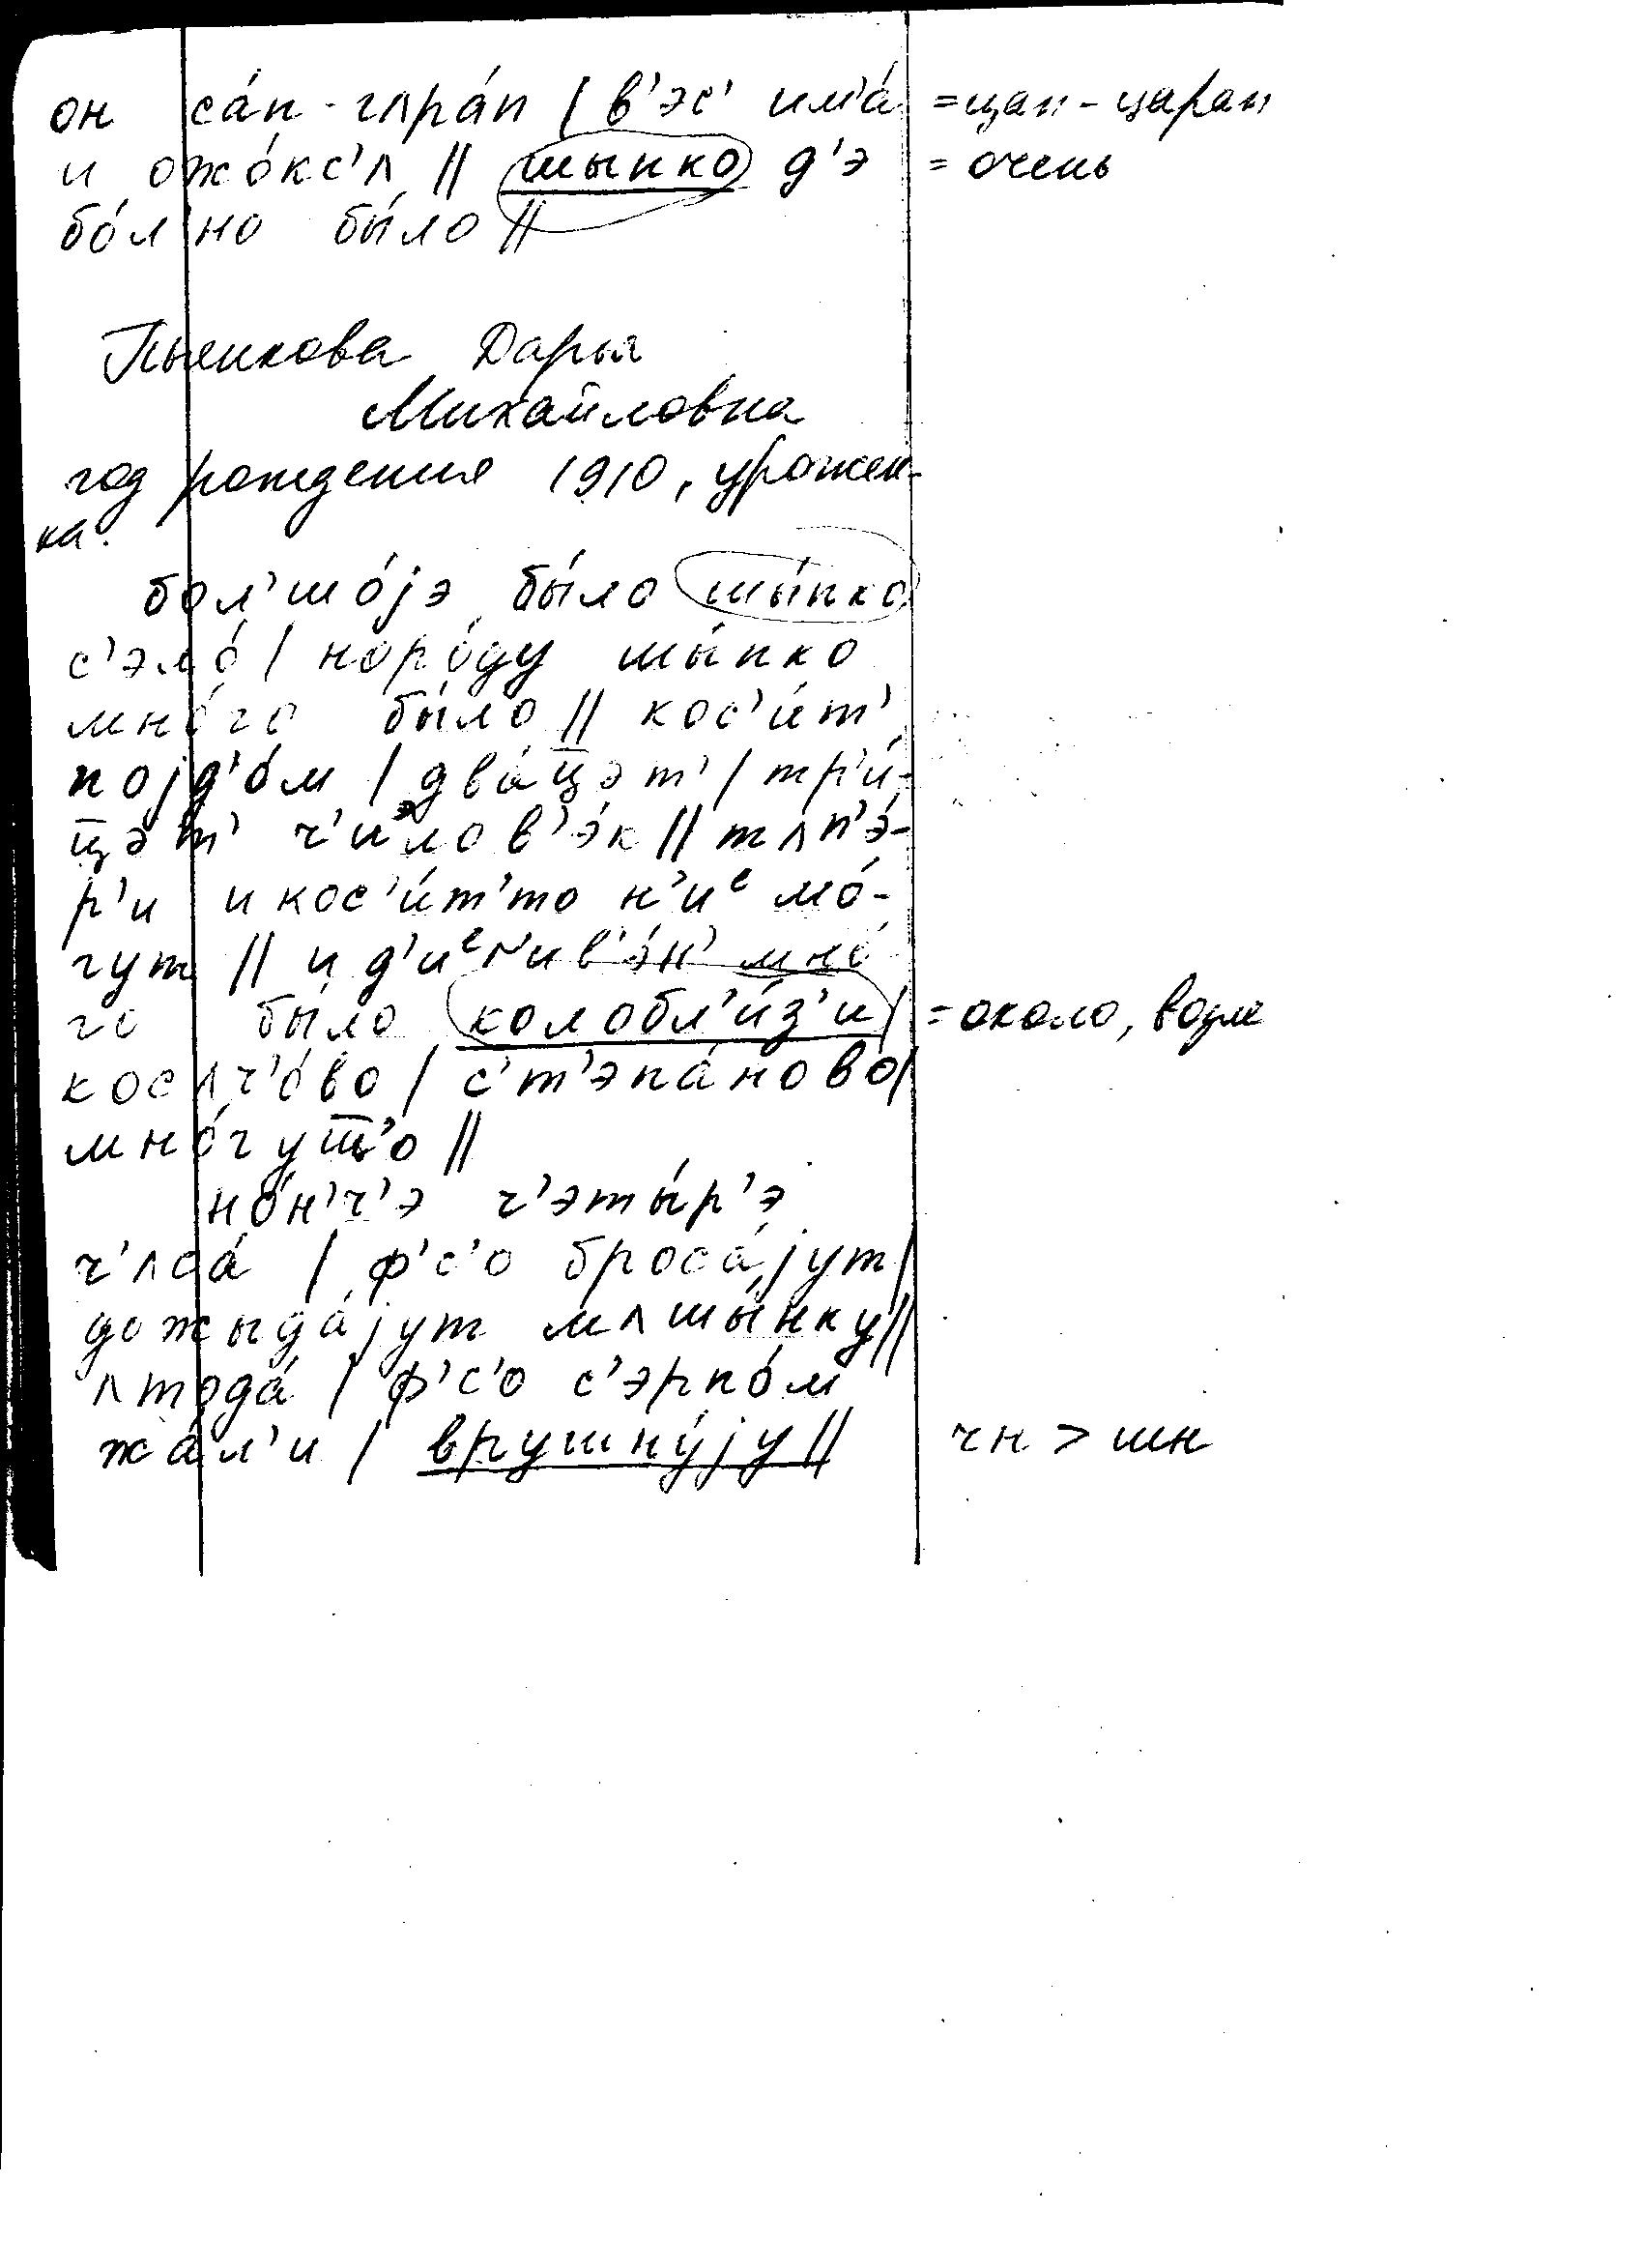 он са́п-глра́п / в'эс' им'а́ = цап-царап
и ожо́кс'ʌ || шыпко д'э = очень
бо́л'но бы́ло ||
Дарья
Михайловна
год рождения 1910, урожен-
ка.
бол'шо́jэ бы́ло шы́пко
с'эло́ / норо́ду шы́пко
мно́го бы́ло || кос'и́т'
поjд'о́м / два́цэт' / тр'и́-
цэт' ч'иᵊлов'э́к || тʌп'э́-
р'и и кос'и́т'то н'иᵉ мо́-
гут || и д'иᵉр'ив'э́н' мно́
го бы́ло колобл'и́з'и / = около, возле
косʌч'о́во / с'т'эпа́ново /
мно́гу
но́н'ч'э ч'эты́р'э
ч'ʌса́ / ф'с'о броса́jут /
дожыда́jут мʌшы́нку ||
ʌтода́ / ф'с'о с'эрпо́м
жа́л'и / врушну́jу || чн > шн